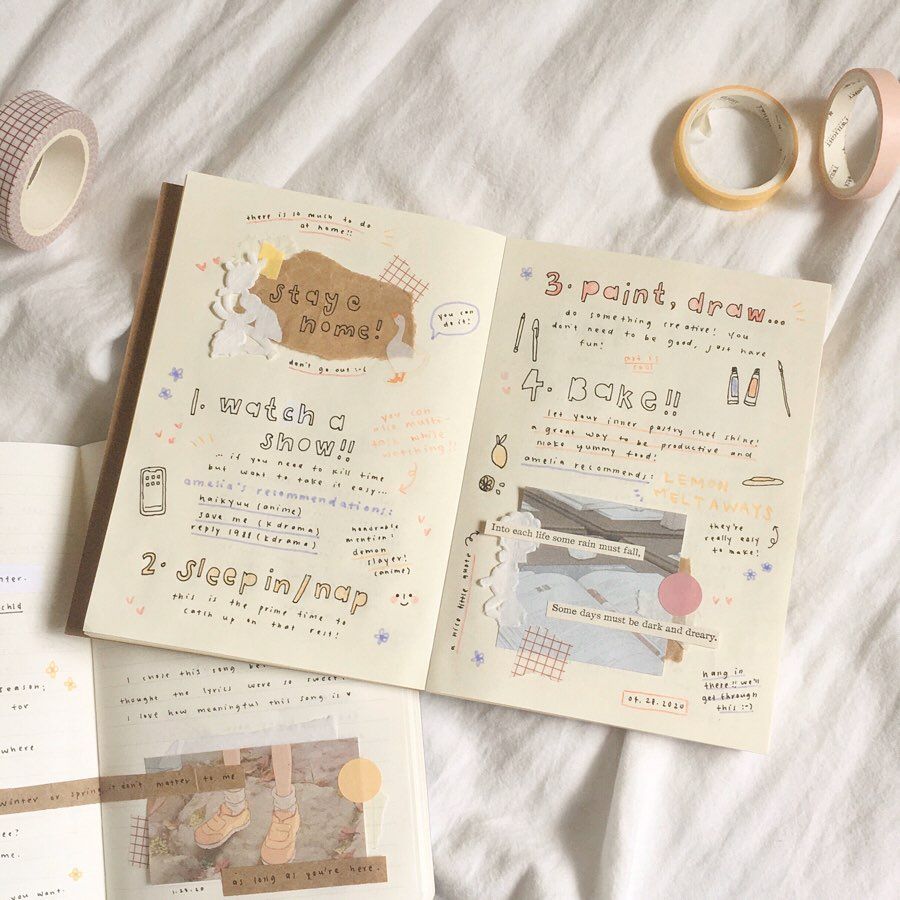 there is so much to do
at home!!
stay @
home!
you can
do it!
don't go out :-(
1. watch a
show!!
you can
also multi-
task while
watching!!
... if you need to kill time
but want to take it easy...
amelia's recommendations:
haikyuu (anime)
save me (kdrama)
reply 1988 (kdrama)
honorable
mention:
demon
slayer!
(anime)
2. sleep in/nap
this is the prime time to
catch up on that rest!
3. paint, draw...
do something creative! you
don't need to be good, just have
fun!
art is
cool
4. BAKE!!
let your inner pastry chef shine!
a great way to be productive and
make yummy food!
amelia recommends: LEMON
MELTAWAYS
they're
really easy
to make!
a nice little quote
Into each life some rain must fall,
Some days must be dark and dreary.
hang in
there!! we'll
get through
this :-)
04.28.2020
TWILIGHT
nter.
child
season;
for
where
winter or spring it don't matter to me
ee?
me.
you want.
I chose this song be
thought the lyrics were so sweet
I love how meaningful this song is
as long as you're here.
1.28.20